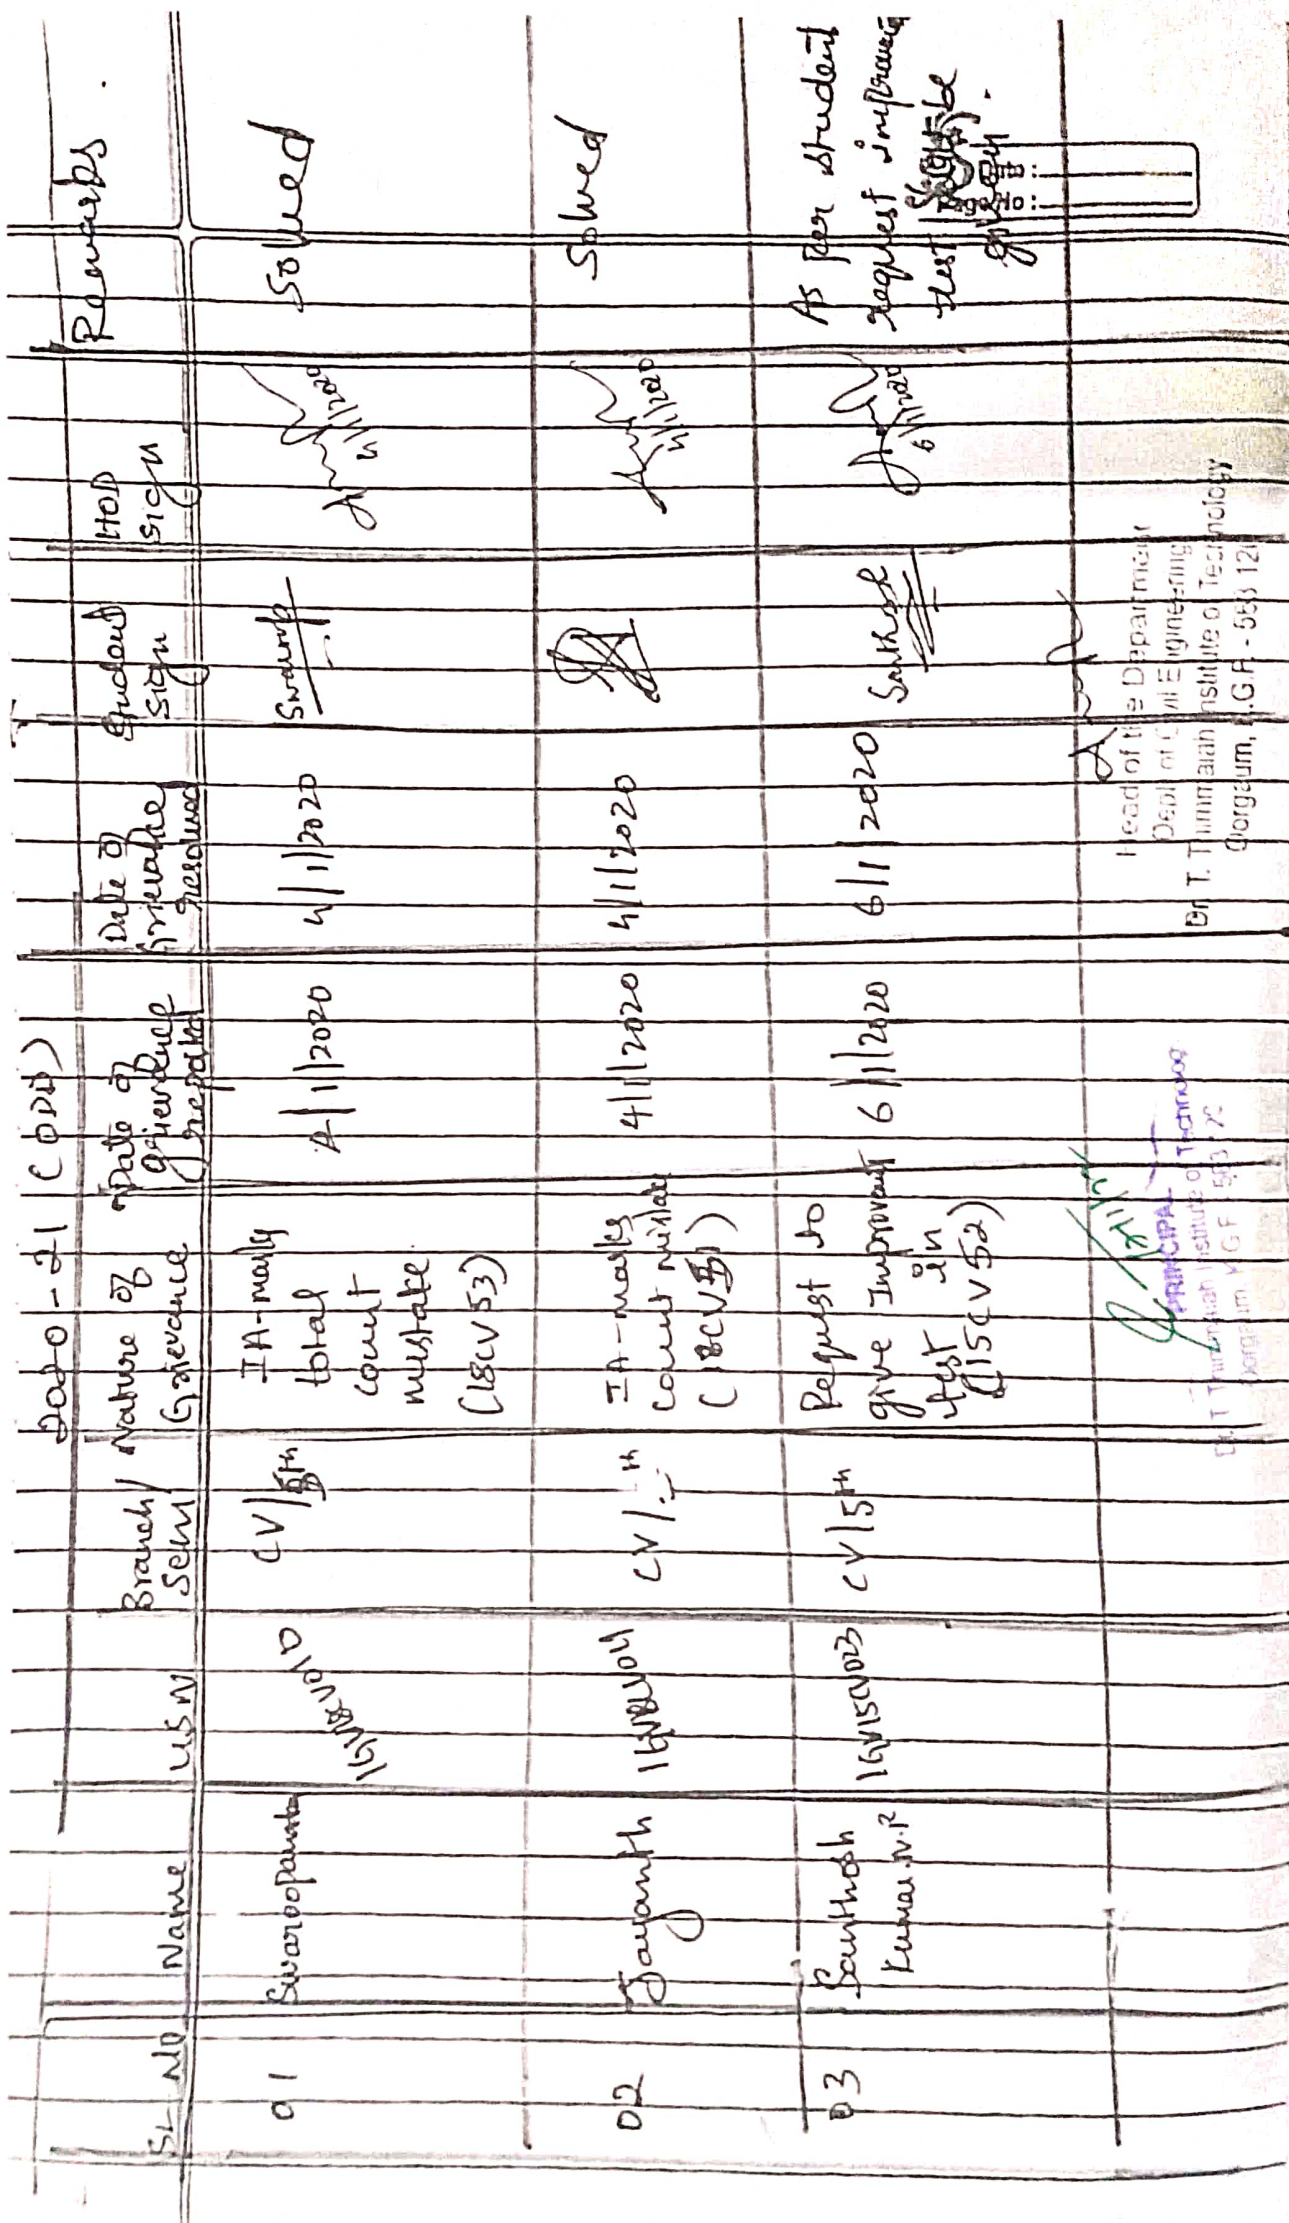 2020-21 (ODD)
SL No
Name
USN
Branch/
Sem
Nature of
Grievance
Date of
grievence
repoted
Date of
Grievance
resolved
Student
sign
HOD
sign
Remarks
01
CV/5th
IA-marks
total
count
mistake
(18CV53)
4/1/2020
4/1/2020
Swarup
4/1/2020
Solved
02
Jayanth
CV/
IA-marks
count mistake
4/1/2020
4/1/2020
4/1/2020
Solved
03
Santhosh
Kumar.N.P
1GV15CV023
CV/5th
Request to
give Improvant
test in
(15CV52)
6/1/2020
6/1/2020
Santhosh
6/1/2020
As per student
request
test
given.
Head of the Department
Dept. of Civil Engineering
Dr. T. Thimmaiah Institute of Technology
Oorgaum, K.G.F. - 563 12
PRINCIPAL
Dr. T Thimmaiah Institute of Technology
Oorgaum K G F